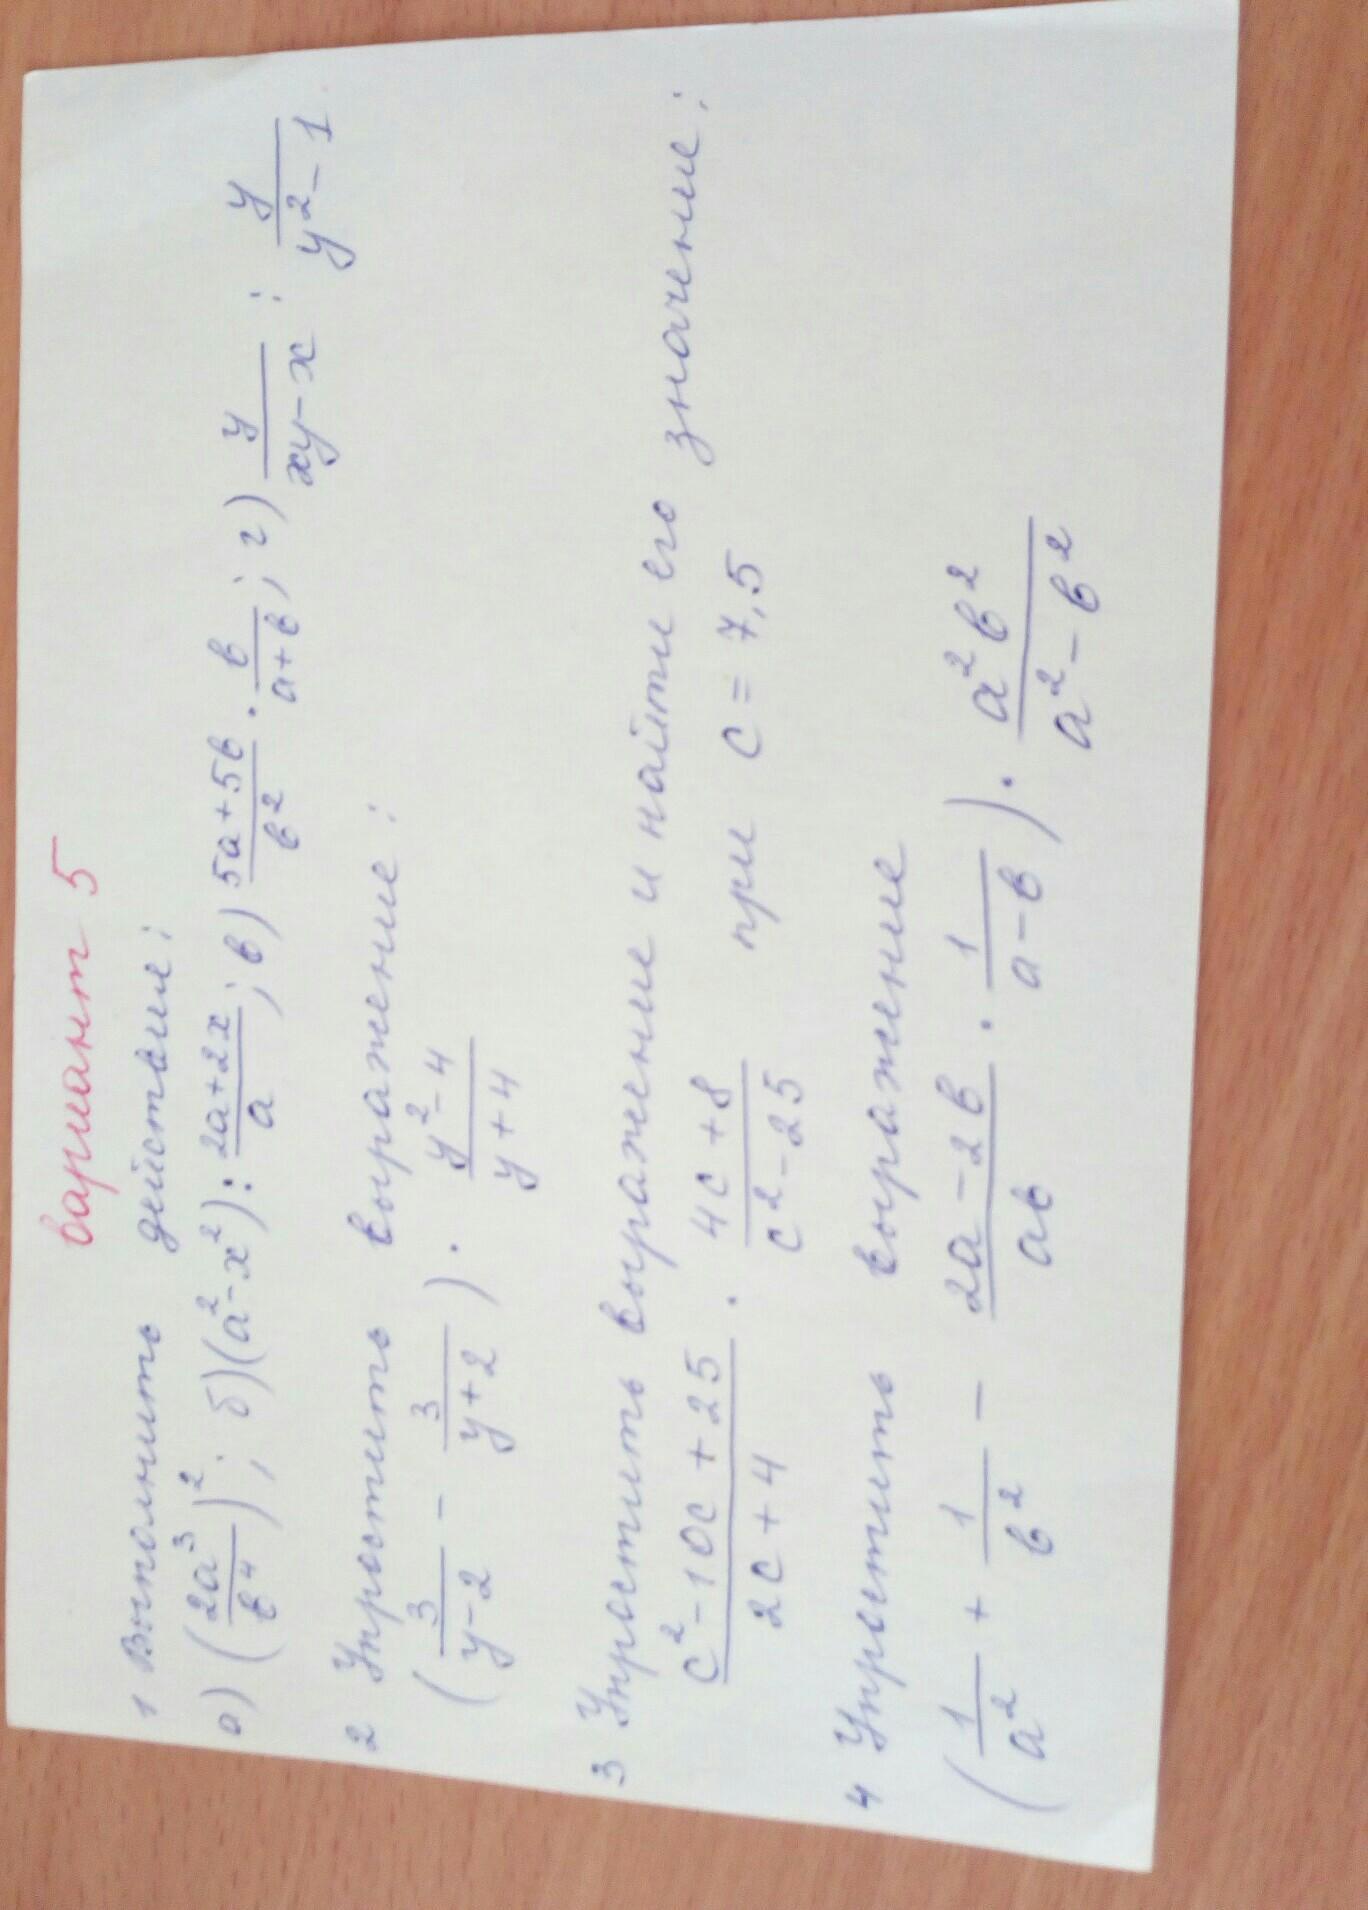 вариант 5
1 Выполнить действия:
а) (2a³/b⁴)²; б) (a²-x²) : (2a+2x)/a; в) (5a+5b)/b² · b/(a+b); г) y/(xy-x) : y/(y²-1)
2 Упростить выражение:
(3/(y-2) - 3/(y+2)) · (y²-4)/(y+4)
3 Упростить выражение и найти его значение:
(c²-10c+25)/(2c+4) · (4c+8)/(c²-25) при c=7,5
4 Упростить выражение
(1/a² + 1/b² - (2a-2b)/ab · 1/(a-b)) · a²b²/(a²-b²)